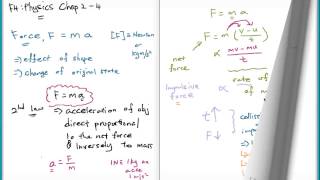 F4: Physics Chap 2 - 4
Force, F = ma
[F] = Newton
or
kgm/s²
⇒ effect of shape
⇒ change of original state
F = ma
2nd law ⇒ acceleration of obj
direct proportional
to the net force
& inversely to mass
a = F/m
1N = 1kg
F = ma
F = m (v-u/t)
net
force
∝ mv-mu/t
rate of
impulsive
force
t ↑
F ↓